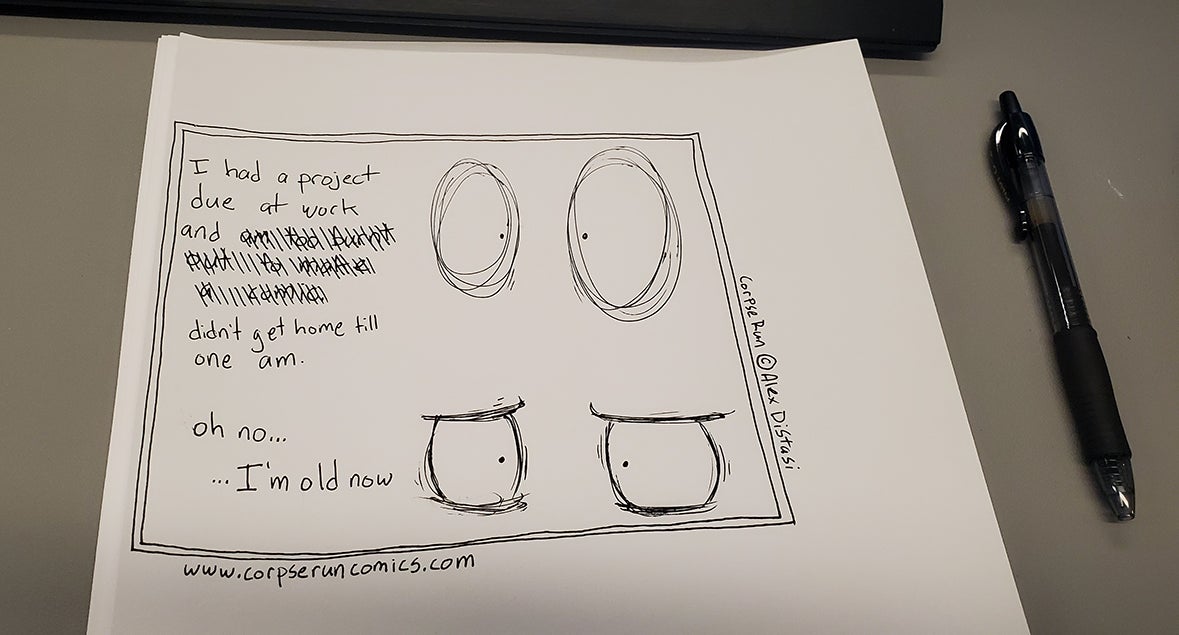 I had a project
due at work
and
didn't get home till
one am.
oh no...
...I'm old now
Corpse Run © Alex Distasi
www.corpseruncomics.com